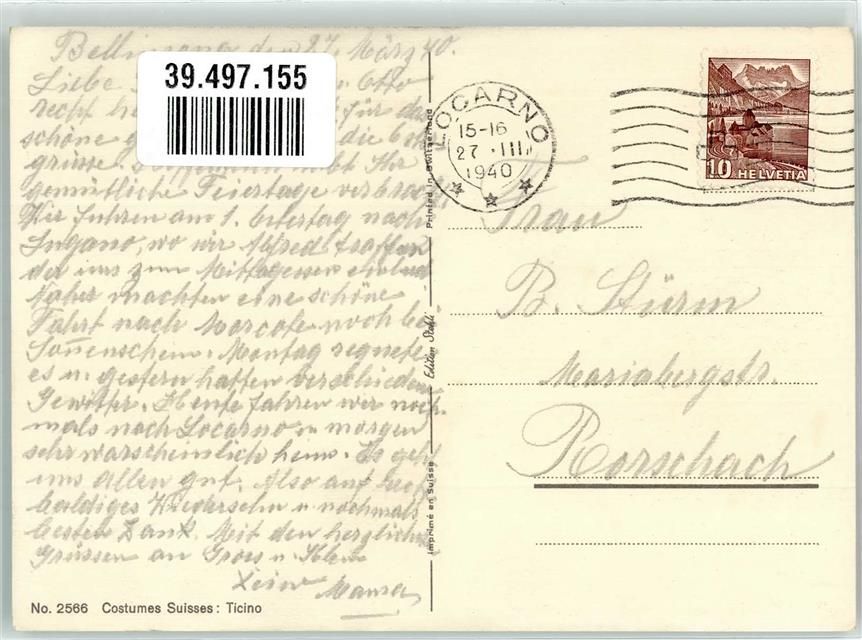 Bellinzona den 27. März 40.
39.497.155
Liebe Otto
recht für das
schöne die
grüsse. Ihr
gemütliche Feiertage verbracht.
Wir fuhren am 1. Ostertag nach
Lugano, wo wir Alfred trafen
der uns zum Mittagessen einlud
Naher machten eine schöne
Fahrt nach Morcote noch bei
Sonnenschein. Montag regnete
es u. gestern hatten verschiedene
Gewitter. Heute fahren wir noch-
mals nach Locarno u. morgen
sehr warscheinlich heim. Es geht
uns allen gut. Also auf
baldiges Wiedersehn u. nochmals
besten Dank. Mit den herzlichen
Grüssen an Gross u. Klein
Mama
No. 2566 Costumes Suisses: Ticino
Printed in Switzerland
Edition Stehli
Imprimé en Suisse
LOCARNO
15-16
27.III
1940
10 HELVETIA
Frau
B. Stürm
Mariabergstr.
Rorschach